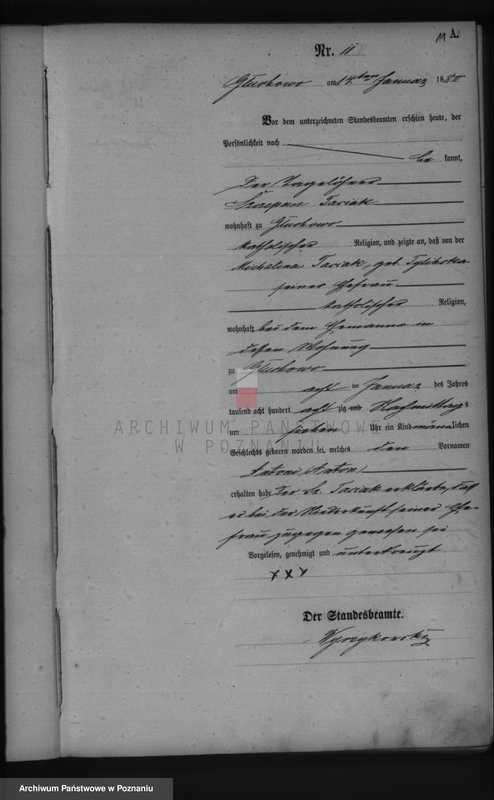 11 A.
Nr. 11
Gluchowo am 14ten Januar 1880
Vor dem unterzeichneten Standesbeamten erschien heute, der
Persönlichkeit nach
be kannt,
Der Tagelöhner
Szczepan Taciak
wohnhaft zu Gluchowo
katholischer Religion, und zeigte an, daß von der
Michalina Taciak, geb.
seiner Ehefrau
katholischer Religion,
wohnhaft bei dem Ehemanne in
dessen Wohnung
zu Gluchowo
am acht ten Januar des Jahres
tausend acht hundert acht zig und Nachmittags
um sieben Uhr ein Kind männlichen
Geschlechts geboren worden sei, welches den Vornamen
Antoni Anton
erhalten habe. Der Taciak erklärte, daß
er bei der Niederkunft seiner Ehe-
frau zugegen gewesen sei
Vorgelesen, genehmigt und unterkreuzt
XXX
Der Standesbeamte.
ARCHIWUM PAŃSTWOWE
W POZNANIU
Archiwum Państwowe w Poznaniu